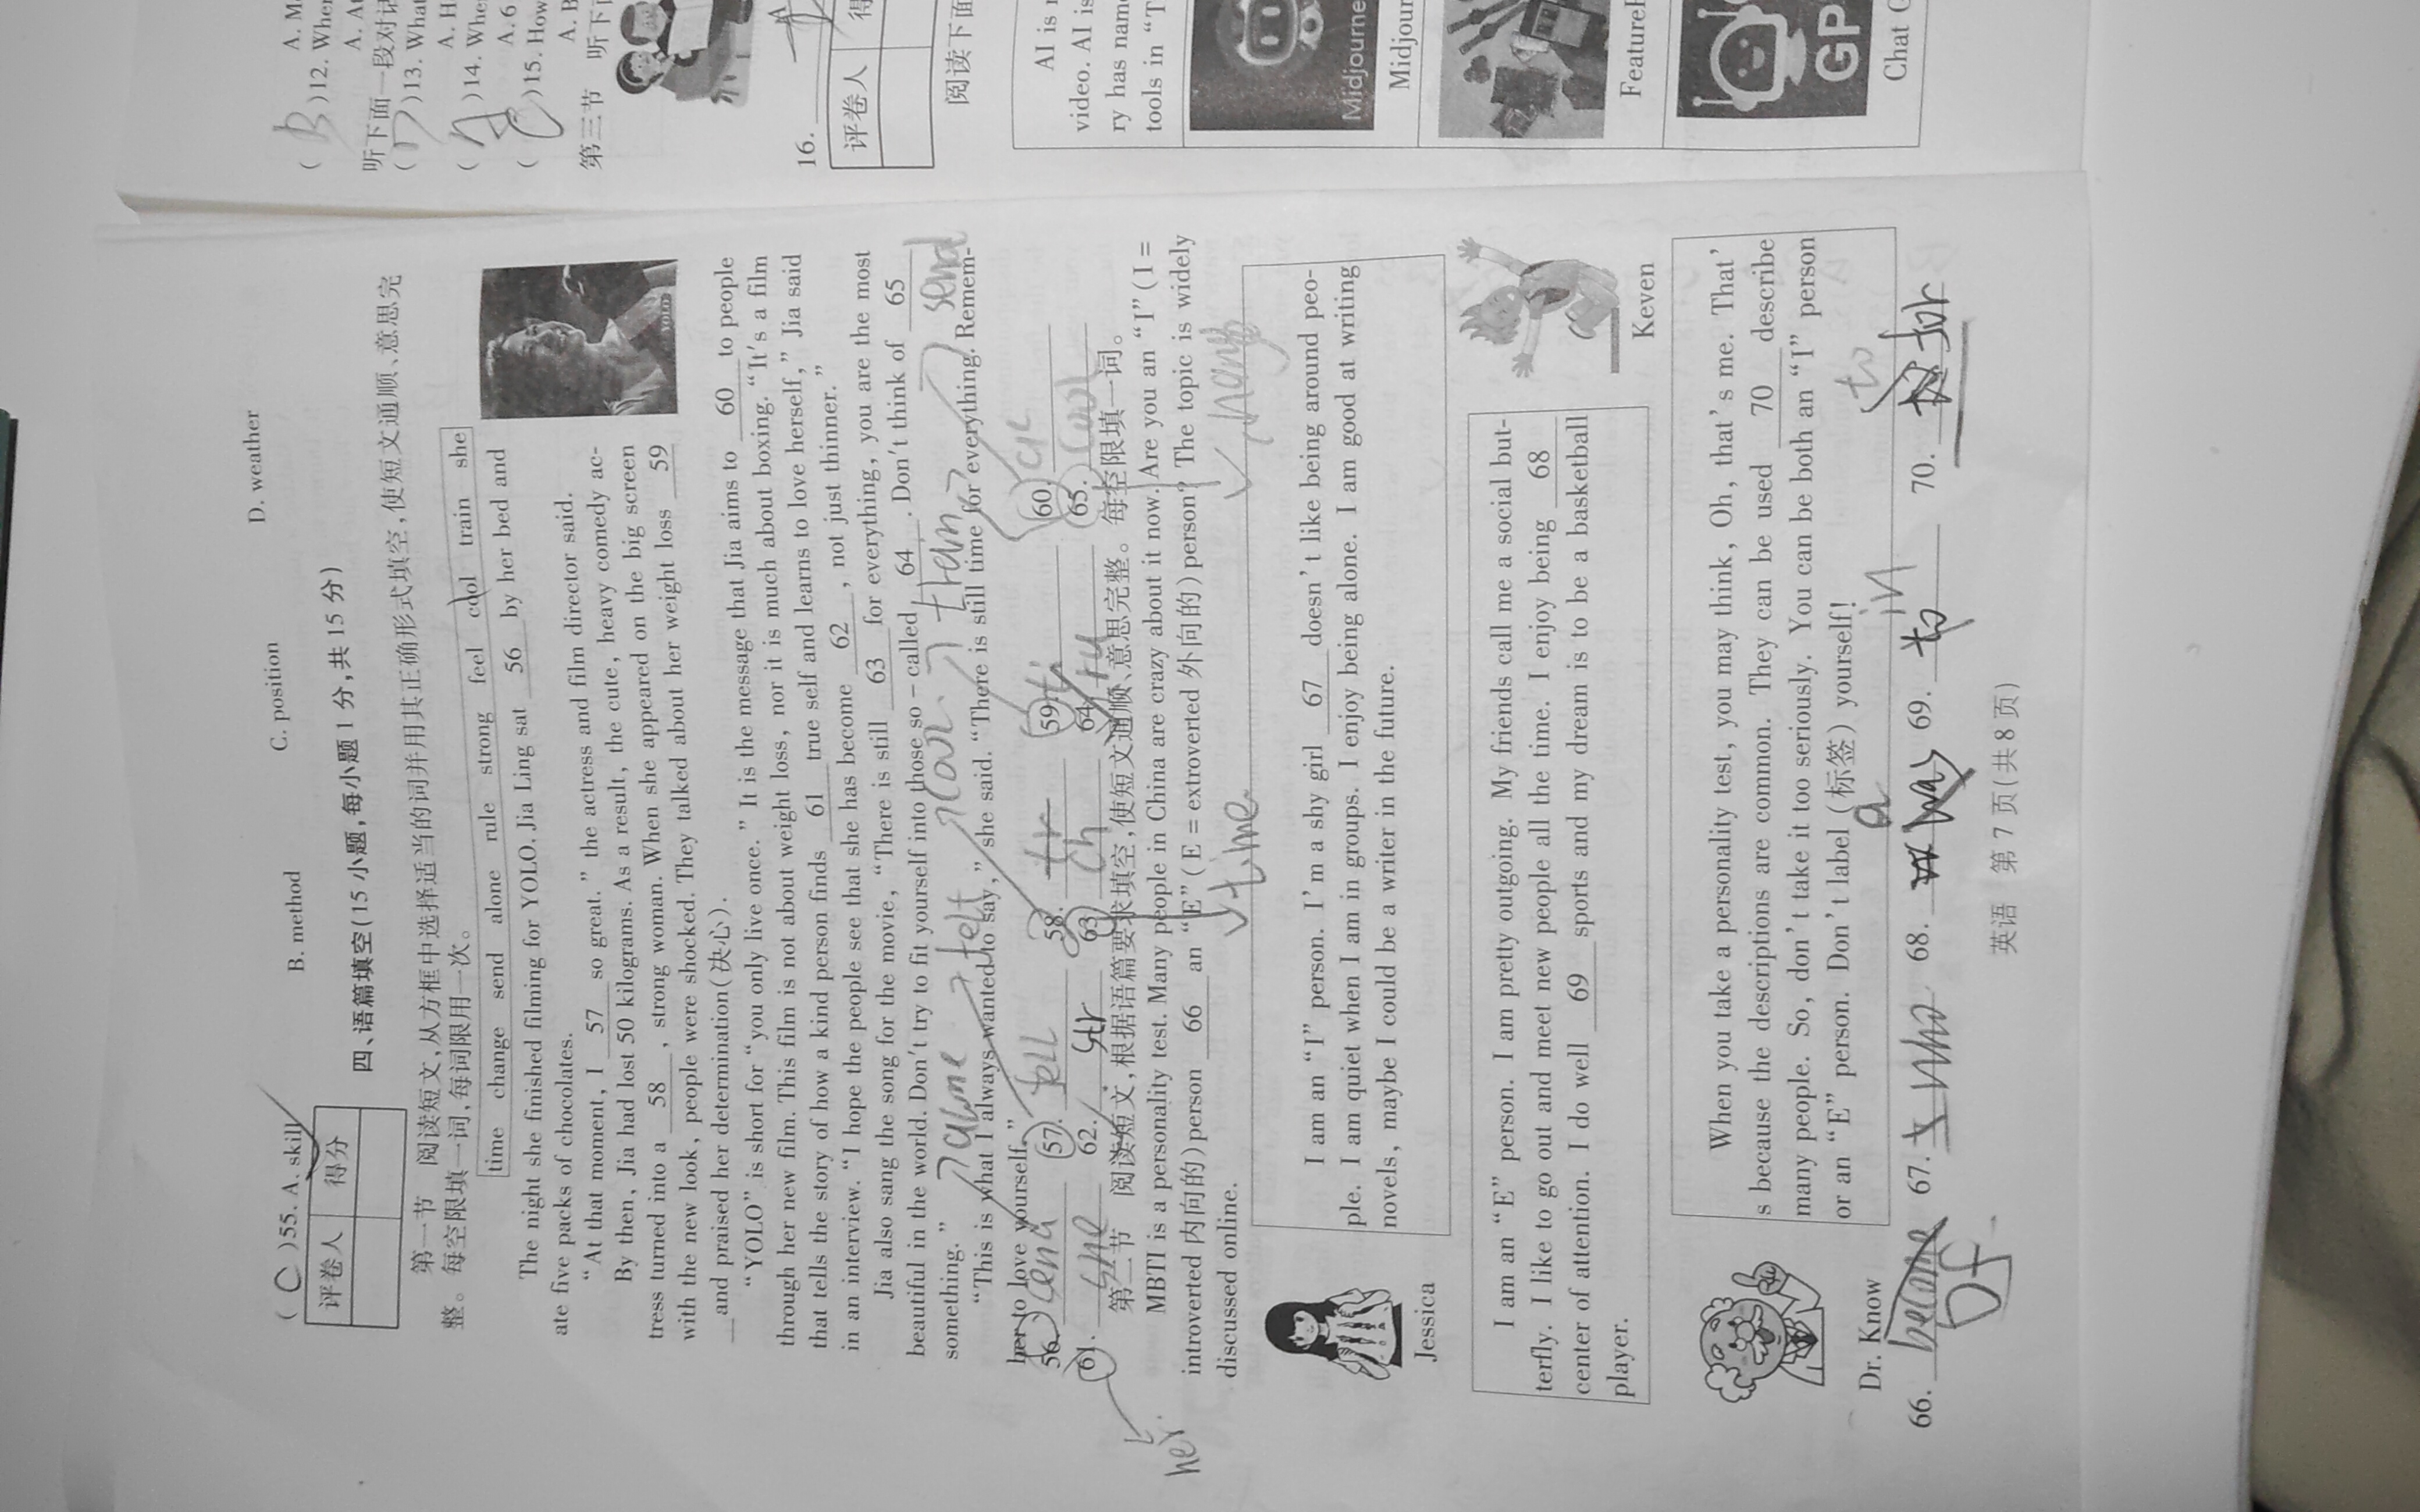 ( C )55. A. skill B. method C. position D. weather
评卷人 得分
四、语篇填空(15 小题,每小题 1 分,共 15 分)
第一节 阅读短文,从方框中选择适当的词并用其正确形式填空,使短文通顺、意思完
整。每空限填一词,每词限用一次。
time change send alone rule strong feel cool train she
The night she finished filming for YOLO, Jia Ling sat 56 by her bed and
ate five packs of chocolates.
"At that moment, I 57 so great." the actress and film director said.
By then, Jia had lost 50 kilograms. As a result, the cute, heavy comedy ac-
tress turned into a 58 , strong woman. When she appeared on the big screen
with the new look, people were shocked. They talked about her weight loss 59
and praised her determination(决心).
"YOLO" is short for "you only live once." It is the message that Jia aims to 60 to people
through her new film. This film is not about weight loss, nor it is much about boxing. "It's a film
that tells the story of how a kind person finds 61 true self and learns to love herself," Jia said
in an interview. "I hope the people see that she has become 62 , not just thinner."
Jia also sang the song for the movie, "There is still 63 for everything, you are the most
beautiful in the world. Don't try to fit yourself into those so-called 64 . Don't think of 65
something."
"This is what I always wanted to say," she said. "There is still time for everything. Remem-
ber to love yourself."
56. 57. 58. tr 59. 60.
61. she 62. str 63. ch 64. 65. cool
her
felt
train
send
第二节 阅读短文,根据语篇要求填空,使短文通顺、意思完整。每空限填一词。
MBTI is a personality test. Many people in China are crazy about it now. Are you an "I" (I =
introverted 内向的) person 66 an "E" (E = extroverted 外向的) person? The topic is widely
discussed online.
time
I am an "I" person. I'm a shy girl 67 doesn't like being around peo-
ple. I am quiet when I am in groups. I enjoy being alone. I am good at writing
novels, maybe I could be a writer in the future.
Jessica
I am an "E" person. I am pretty outgoing. My friends call me a social but-
terfly. I like to go out and meet new people all the time. I enjoy being 68
center of attention. I do well 69 sports and my dream is to be a basketball
player.
Keven
When you take a personality test, you may think, Oh, that's me. That'
s because the descriptions are common. They can be used 70 describe
many people. So, don't take it too seriously. You can be both an "I" person
or an "E" person. Don't label (标签) yourself!
Dr. Know
66. become 67. who 68. was 69. to 70. for
or
a
in
to
英语 第 7 页(共 8 页)
A. M
( B )12. Wher
A. At
听下面一段对话
( )13. What
A. H
( A )14. Whe
A. 6
( C )15. How
A. B
第三节 听下
16.
评卷人 得
阅读下面
AI is
video. AI is
ry has name
tools in "T
Midjourne
Midjour
Feature
GP
Chat G